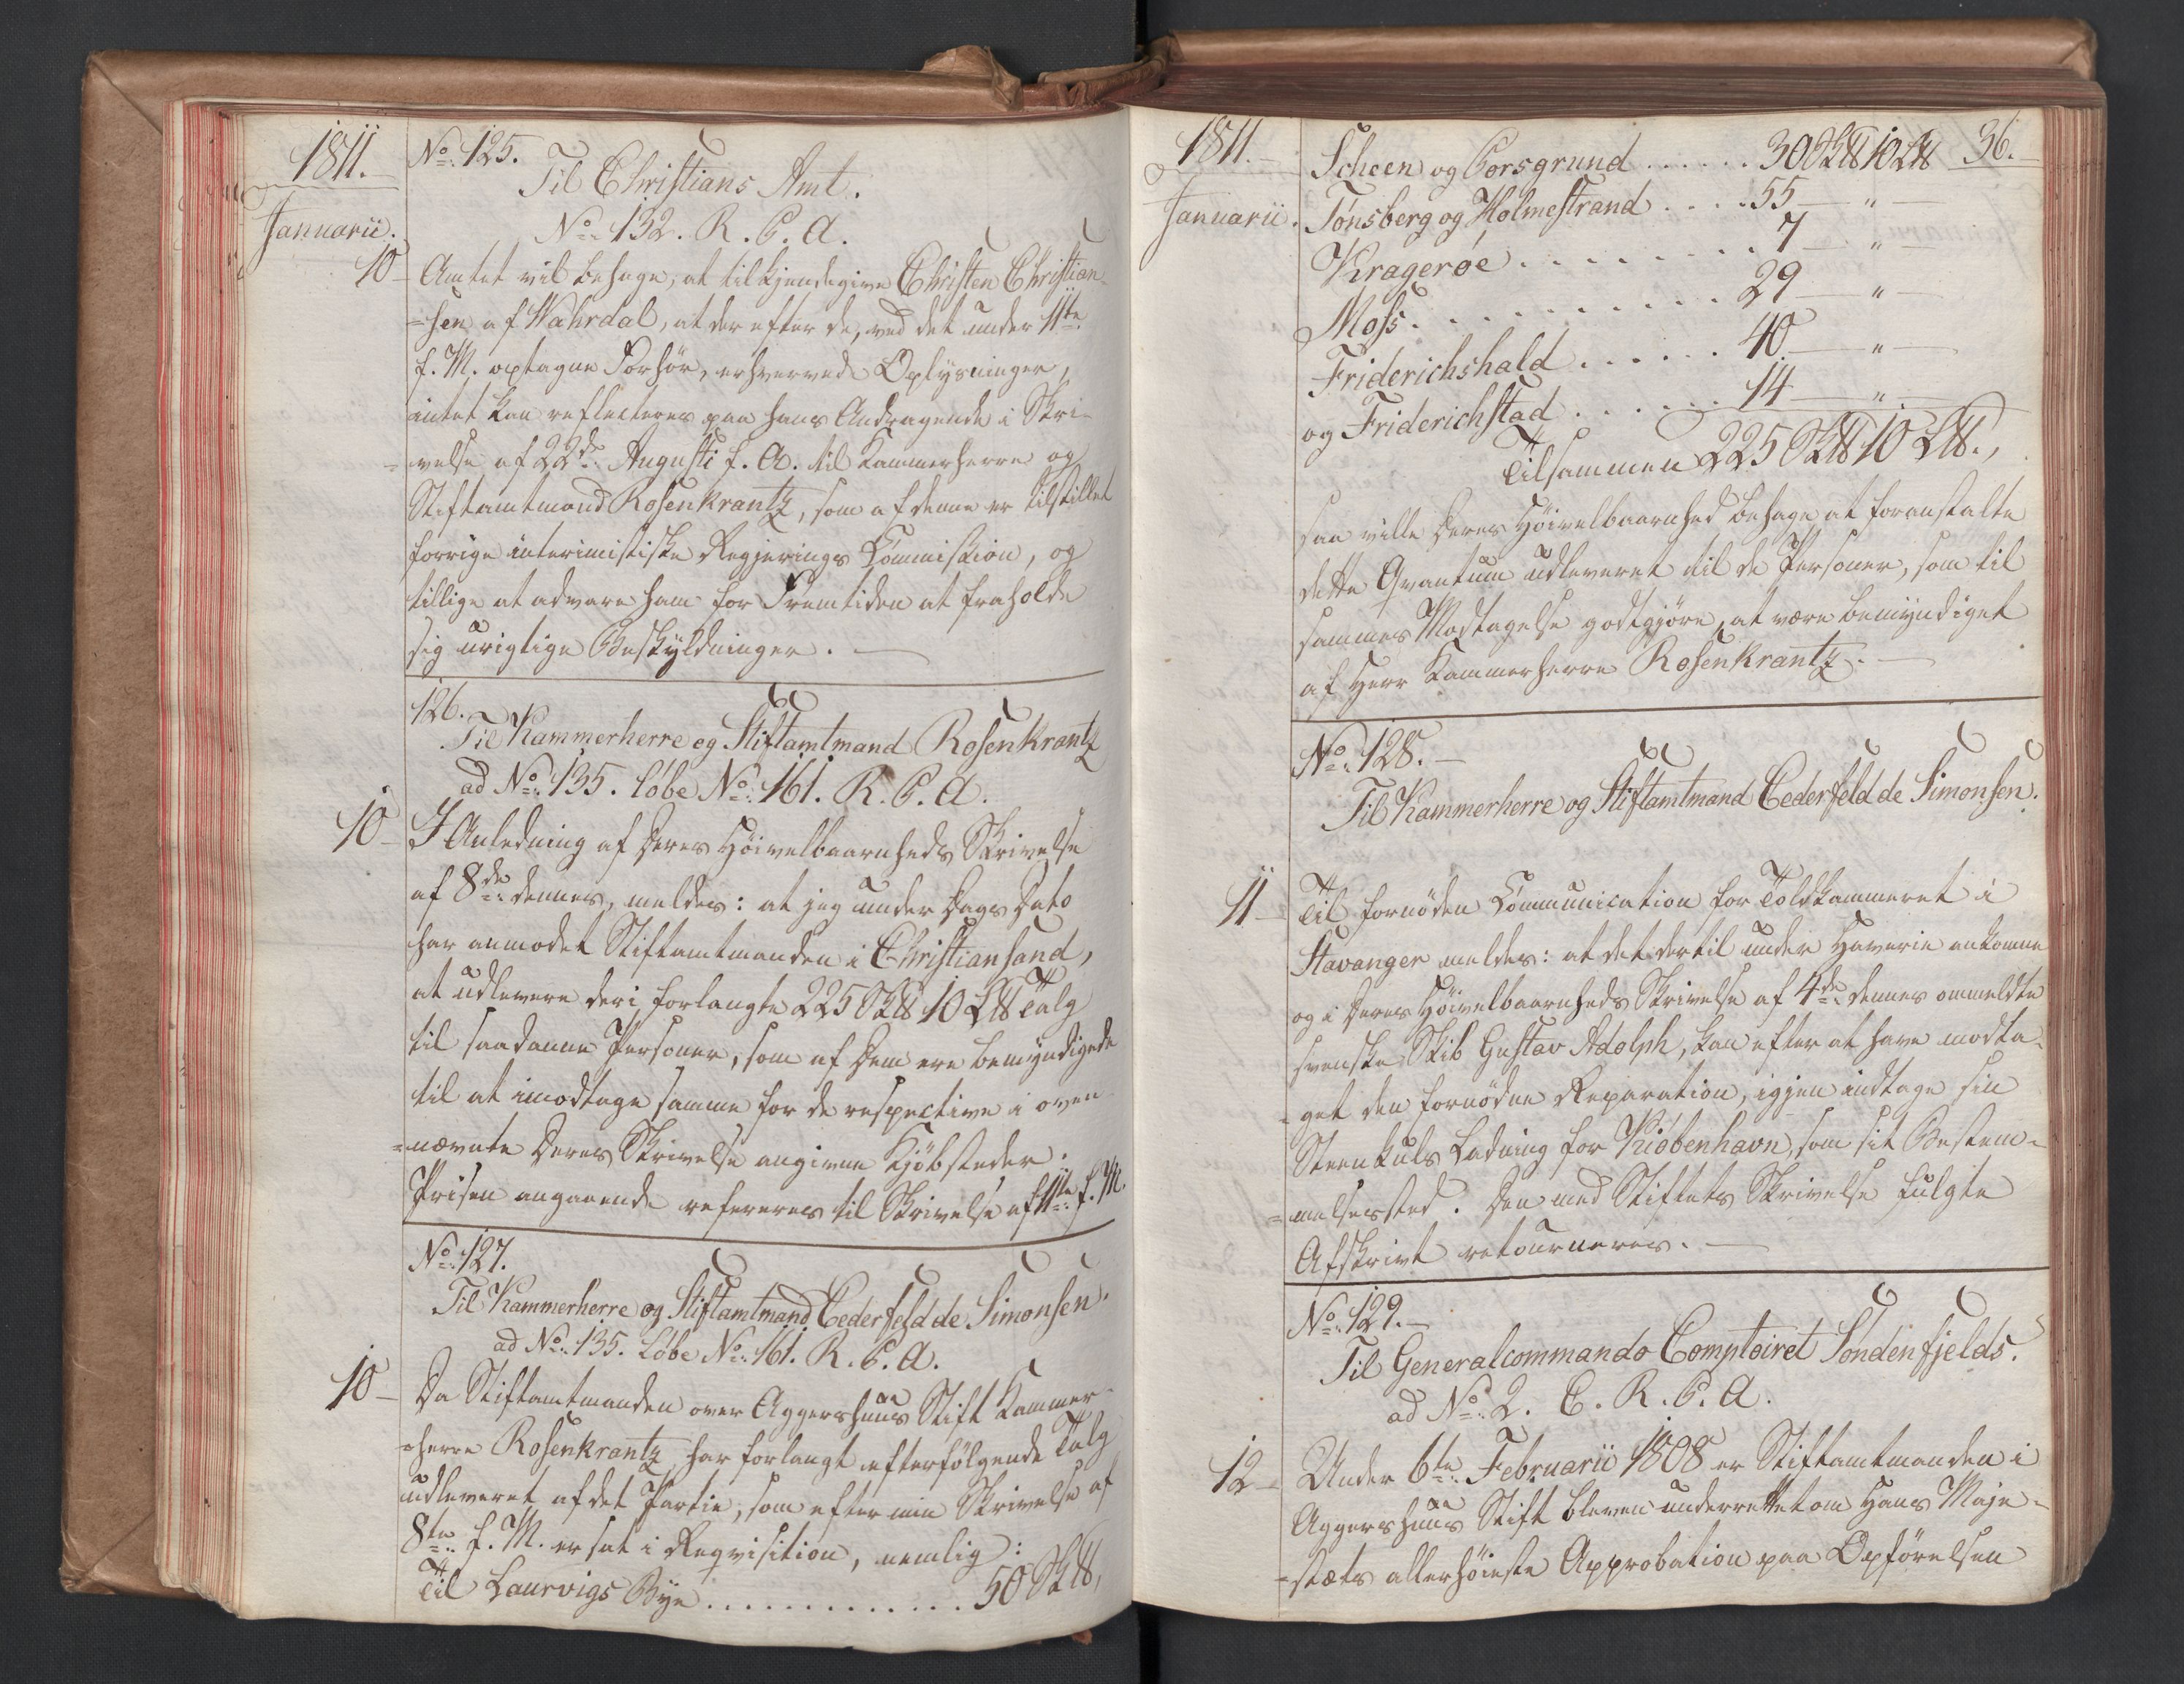 1811.
Januarii.
No. 125.
Til Christians Amt.
No. 132. R. C. A.
10 - Amtet vil behage, at tilkjendegive Christen Christian-
=sen af Wahrdal, at der efter de, ved det under 11te
f. M. optagne Forhör, erhvervede Oplysninger,
intet kan reflecteres paa hans Andragende i Skri-
=velse af 22de Augusti f. A. til Kammerherre og
Stiftamtmand Rosenkrantz, som af denne er tilstillet
forrige interimistiske Regjerings Commission, og
tillige at advare ham for Fremtiden at fraholde
sig urigtige Beskyldninger. —
126.
Til Kammerherre og Stiftamtmand Rosenkrantz
ad No. 135. Löbe No. 161. R. C. A.
10 - I Anledning af Deres Höivelbaarenheds Skrivelse
af 8de dennes, meldes: at jeg under Dags Dato
har anmodet Stiftamtmanden i Christiansand,
at udlevere deri forlangte 225 S℔ 10 L℔ Talg
til saadanne Personer, som af Dem ere bemyndigede
til at imodtage samme for de respective i oven-
=nævnte Deres Skrivelse angivne Kjöbsteder.
Prisen angaaende refereres til Skrivelse af 11te f. M.
No. 127.
Til Kammerherre og Stiftamtmand Cederfeld de Simonsen.
ad No. 135. Löbe No. 161. R. C. A.
10 - Da Stiftamtmanden over Aggershuus Stift Kammer-
=herre Rosenkrantz, har forlangt efterfölgende Talg
udleveret af det Partie, som efter min Skrivelse af
8te f. M. er sat i Reqvisition, nemlig:
Til Laurvigs Bye ............. 50 S℔,
1811. -
36. -
Januarii.
Scheen og Porsgrund ...... 30 S℔ 10 L℔
Tönsberg og Holmestrand .... 55 — " —
Krageröe ......... 7 — " —
Moss .......... 29 — " —
Friderichshald ...... 40 — " —
og Friderichstad ...... 14 — " —
Tilsammen 225 S℔ 10 L℔.,
saa ville Deres Höivelbaarenhed behage at foranstalte
dette Qvantum udleveret til de Personer, som til
sammes Modtagelse godtgjöre, at være bemyndiget
af Herr Kammerherre Rosenkrantz. —
No. 128. —
Til Kammerherre og Stiftamtmand Cederfeld de Simonsen.
11 - Til fornöden Communication for Toldkammeret i
Stavanger meldes: at det dertil under Haverie ankomne
og i Deres Höivelbaarenheds Skrivelse af 4de dennes ommeldte
svenske Skib Gustav Adolph, kan efter at have modta-
=get den fornödne Reparation, igjen indtage sin
Steenkuls Ladning for Kiöbenhavn, som sit Bestem-
=melsessted. Den med Stiftets Skrivelse fulgte
Afskrivt retourneres. —
No. 129. —
Til Generalcommando Comptoiret Söndenfjelds.
ad No. 2. C. R. C. A.
12 - Under 6te Februarii 1808 er Stiftamtmanden i
Aggershuus Stift bleven underrettet om Hans Maje-
=stæts allerhöieste Approbation paa Opförelsen